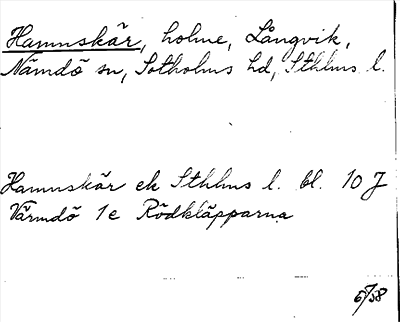 Hamnskär, holme, Långvik,
Nämdö sn, Sotholms hd, Sthlms l.
Hamnskär ek Sthlms l. bl. 10 J
Värmdö 1e Rödkläpparna
6/58